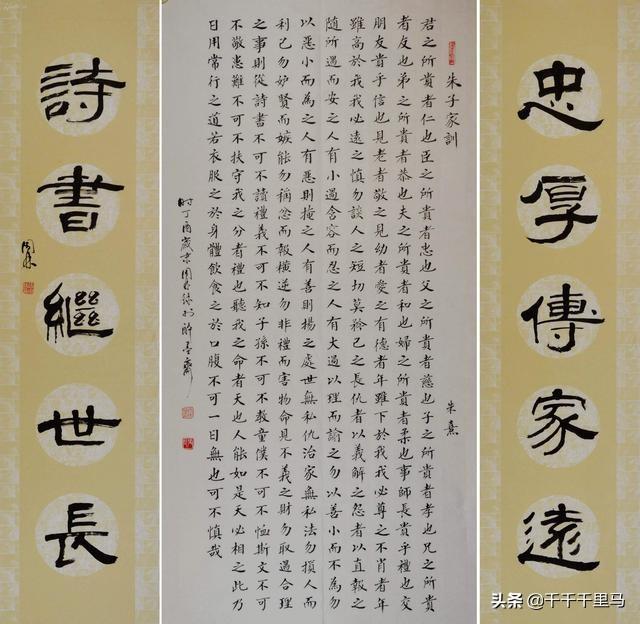 忠厚傳家遠
朱子家訓 朱熹
君之所貴者仁也臣之所貴者忠也父之所貴者慈也子之所貴者孝也兄之所貴
者友也弟之所貴者恭也夫之所貴者和也婦之所貴者柔也事師長貴乎禮也交
朋友貴乎信也見老者敬之見幼者愛之有德者年雖下於我我必尊之不肖者年
雖高於我我必遠之慎勿談人之短切莫矜己之長仇者以義解之怨者以直報之
隨所遇而安之人有小過含容而忍之人有大過以理而諭之勿以善小而不為勿
以惡小而為之人有惡則掩之人有善則揚之處世無私仇治家無私法勿損人而
利己勿妒賢而嫉能勿稱忿而報橫逆勿非禮而害物命見不義之財勿取遇合理
之事則從詩書不可不讀禮義不可不知子孫不可不教童僕不可不恤斯文不可
不敬患難不可不扶守我之分者禮也聽我之命者天也人能如是天必相之此乃
日用常行之道若衣服之於身體飲食之於口腹不可一日無也可不慎哉
时丁酉歲
詩書繼世長
头条 @千千千里马